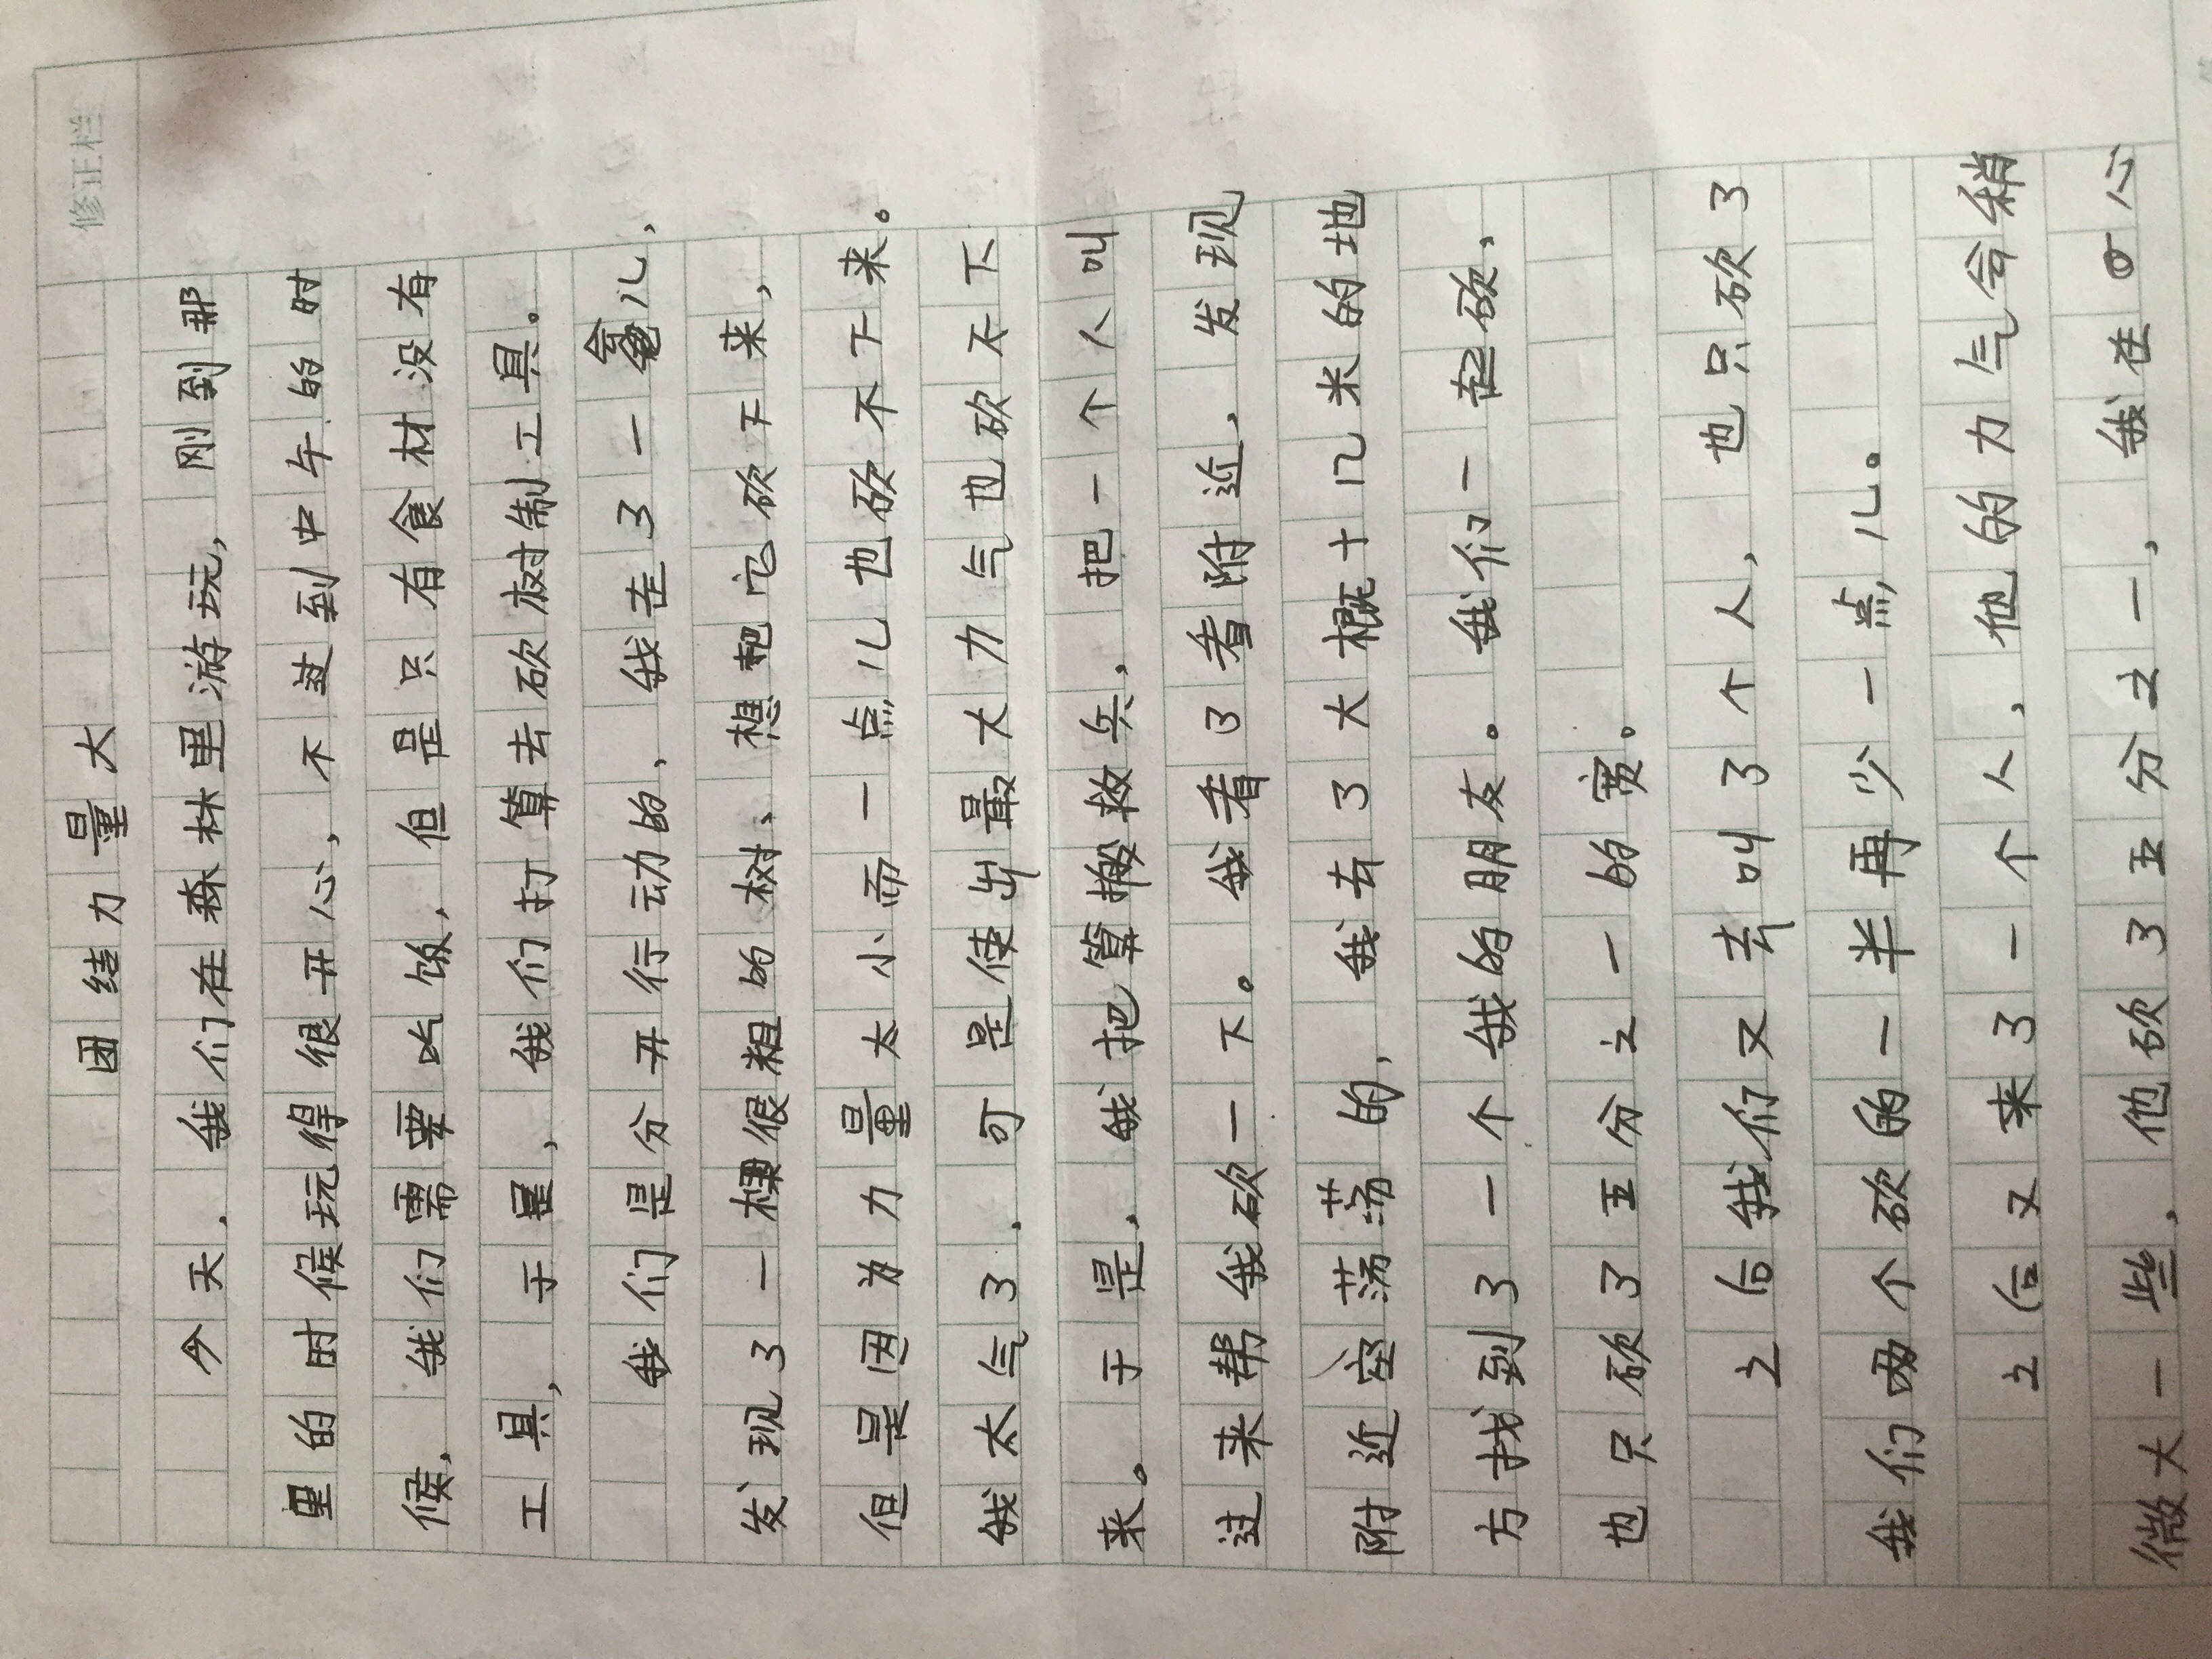 修正栏
团结力量大
今天，我们在森林里游玩，刚到那
里的时候玩得很开心，不过到中午的时
候，我们需要吃饭，但是只有食材没有
工具，于是，我们打算去砍树制工具。
我们是分开行动的，我走了一会儿，
发现了一棵很粗的树，想把它砍下来，
但是因为力量太小而一点儿也砍不下来。
我太气了，可是使出最大力气也砍不下
来。于是，我把算搬救兵，把一个人叫
过来帮我砍一下。我看了看附近，发现
附近空荡荡的，我去了大概十几米的地
方找到了一个我的朋友。我们一起砍，
也只砍了五分之一的宽。
之后我们又去叫了个人，也只砍了
我们两个砍的一半再少一点儿。
之后又来了一个人，他的力气会稍
微大一些，他砍了五分之一，我在心